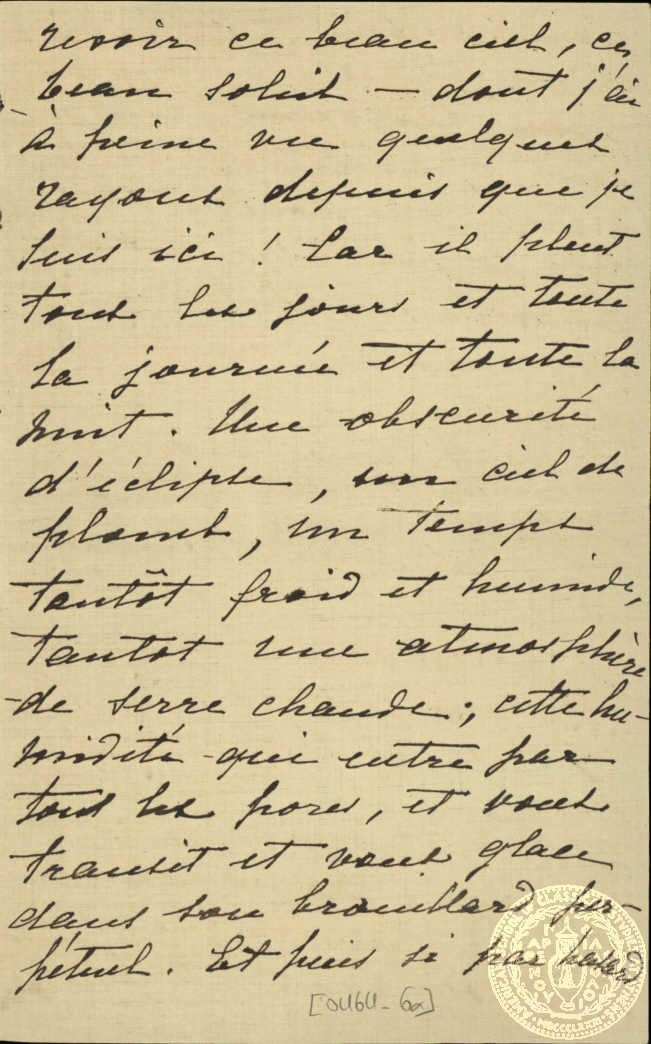 revoir ce beau ciel, ce
beau soleil — dont j'ai
à peine vu quelques
rayons depuis que je
suis ici ! Car il pleut
tous les jours et toute
la journée et toute la
nuit. Une obscurité
d'éclipse, un ciel de
plomb, un temps
tantôt froid et humide,
tantôt une atmosphère
de serre chaude ; cette hu-
midité qui entre par
tous les pores, et vous
transit et vous glace
dans son brouillard per-
pétuel. Et puis si par hasard
[04164-6α]